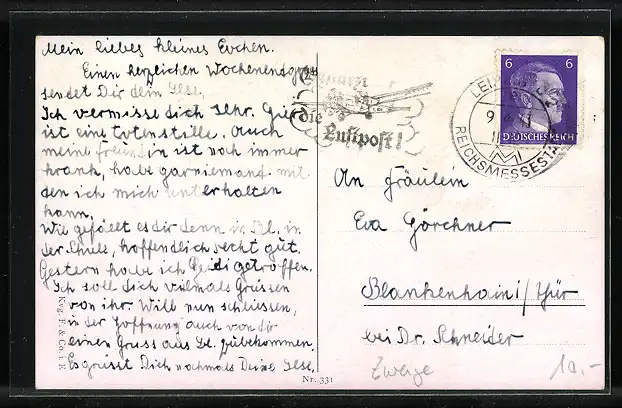 Mein liebes kleines Evchen.
Einen herzlichen Wochenendgruss
sendet Dir dein Ilse.
Ich vermisse dich sehr. Hier
ist eine totenstille. Auch
meine freundin ist noch immer
krank, habe garniemand mit
den ich mich unterhalten
kann.
Wie gefällt es dir denn in Bl. in
der Schule, hoffendlich recht gut.
Gestern habe ich Heidi getroffen.
Ich soll dich vielmals Grüssen
von ihr. Will nun schliessen,
in der Hoffnung auch von dir
einen Gruss aus Bl. zubekommen.
Es grüsst Dich nochmals Deine Ilse.
Kvg. F. & Co. i. E
Nr. 331
die
Luftpost!
6 6
DEUTSCHES REICH
9
REICHSMESSESTADT
An Fräulein
Eva Görchner
Blankenhain/Thür
bei Dr. Schneider
Zwerge
10.-